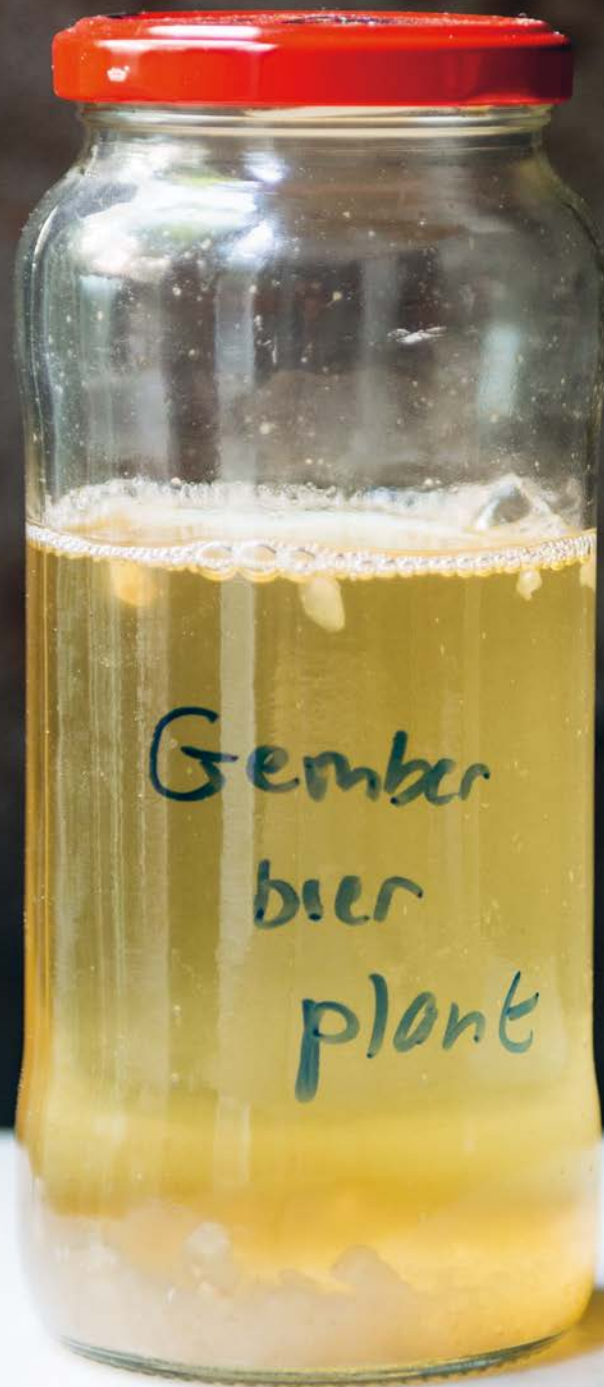 Gember
bier
plant